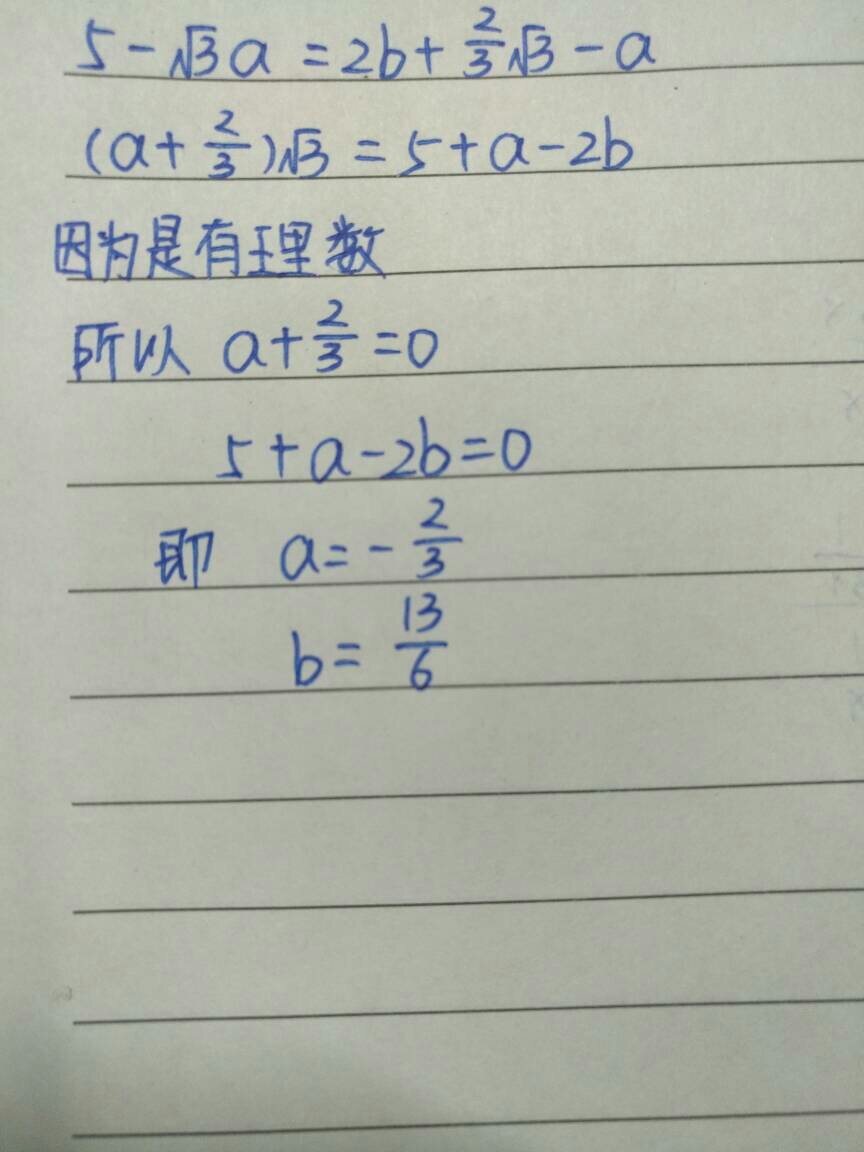 5-√3a=2b+2/3√3-a
(a+2/3)√3=5+a-2b
因为是有理数
所以 a+2/3=0
5+a-2b=0
即 a=-2/3
b=13/6